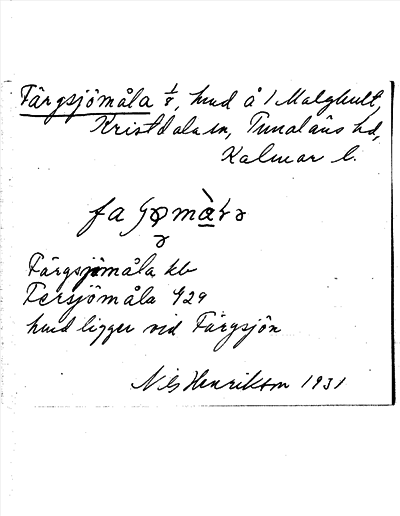 Färgsjömåla 1/8, hmd å 1 Malghult,
Kristdala sn, Tunaläns hd,
Kalmar l.
Färgsjömåla kb
Fersjömåla 929
hmd ligger vid Färgsjön
Nils Henrikson 1931